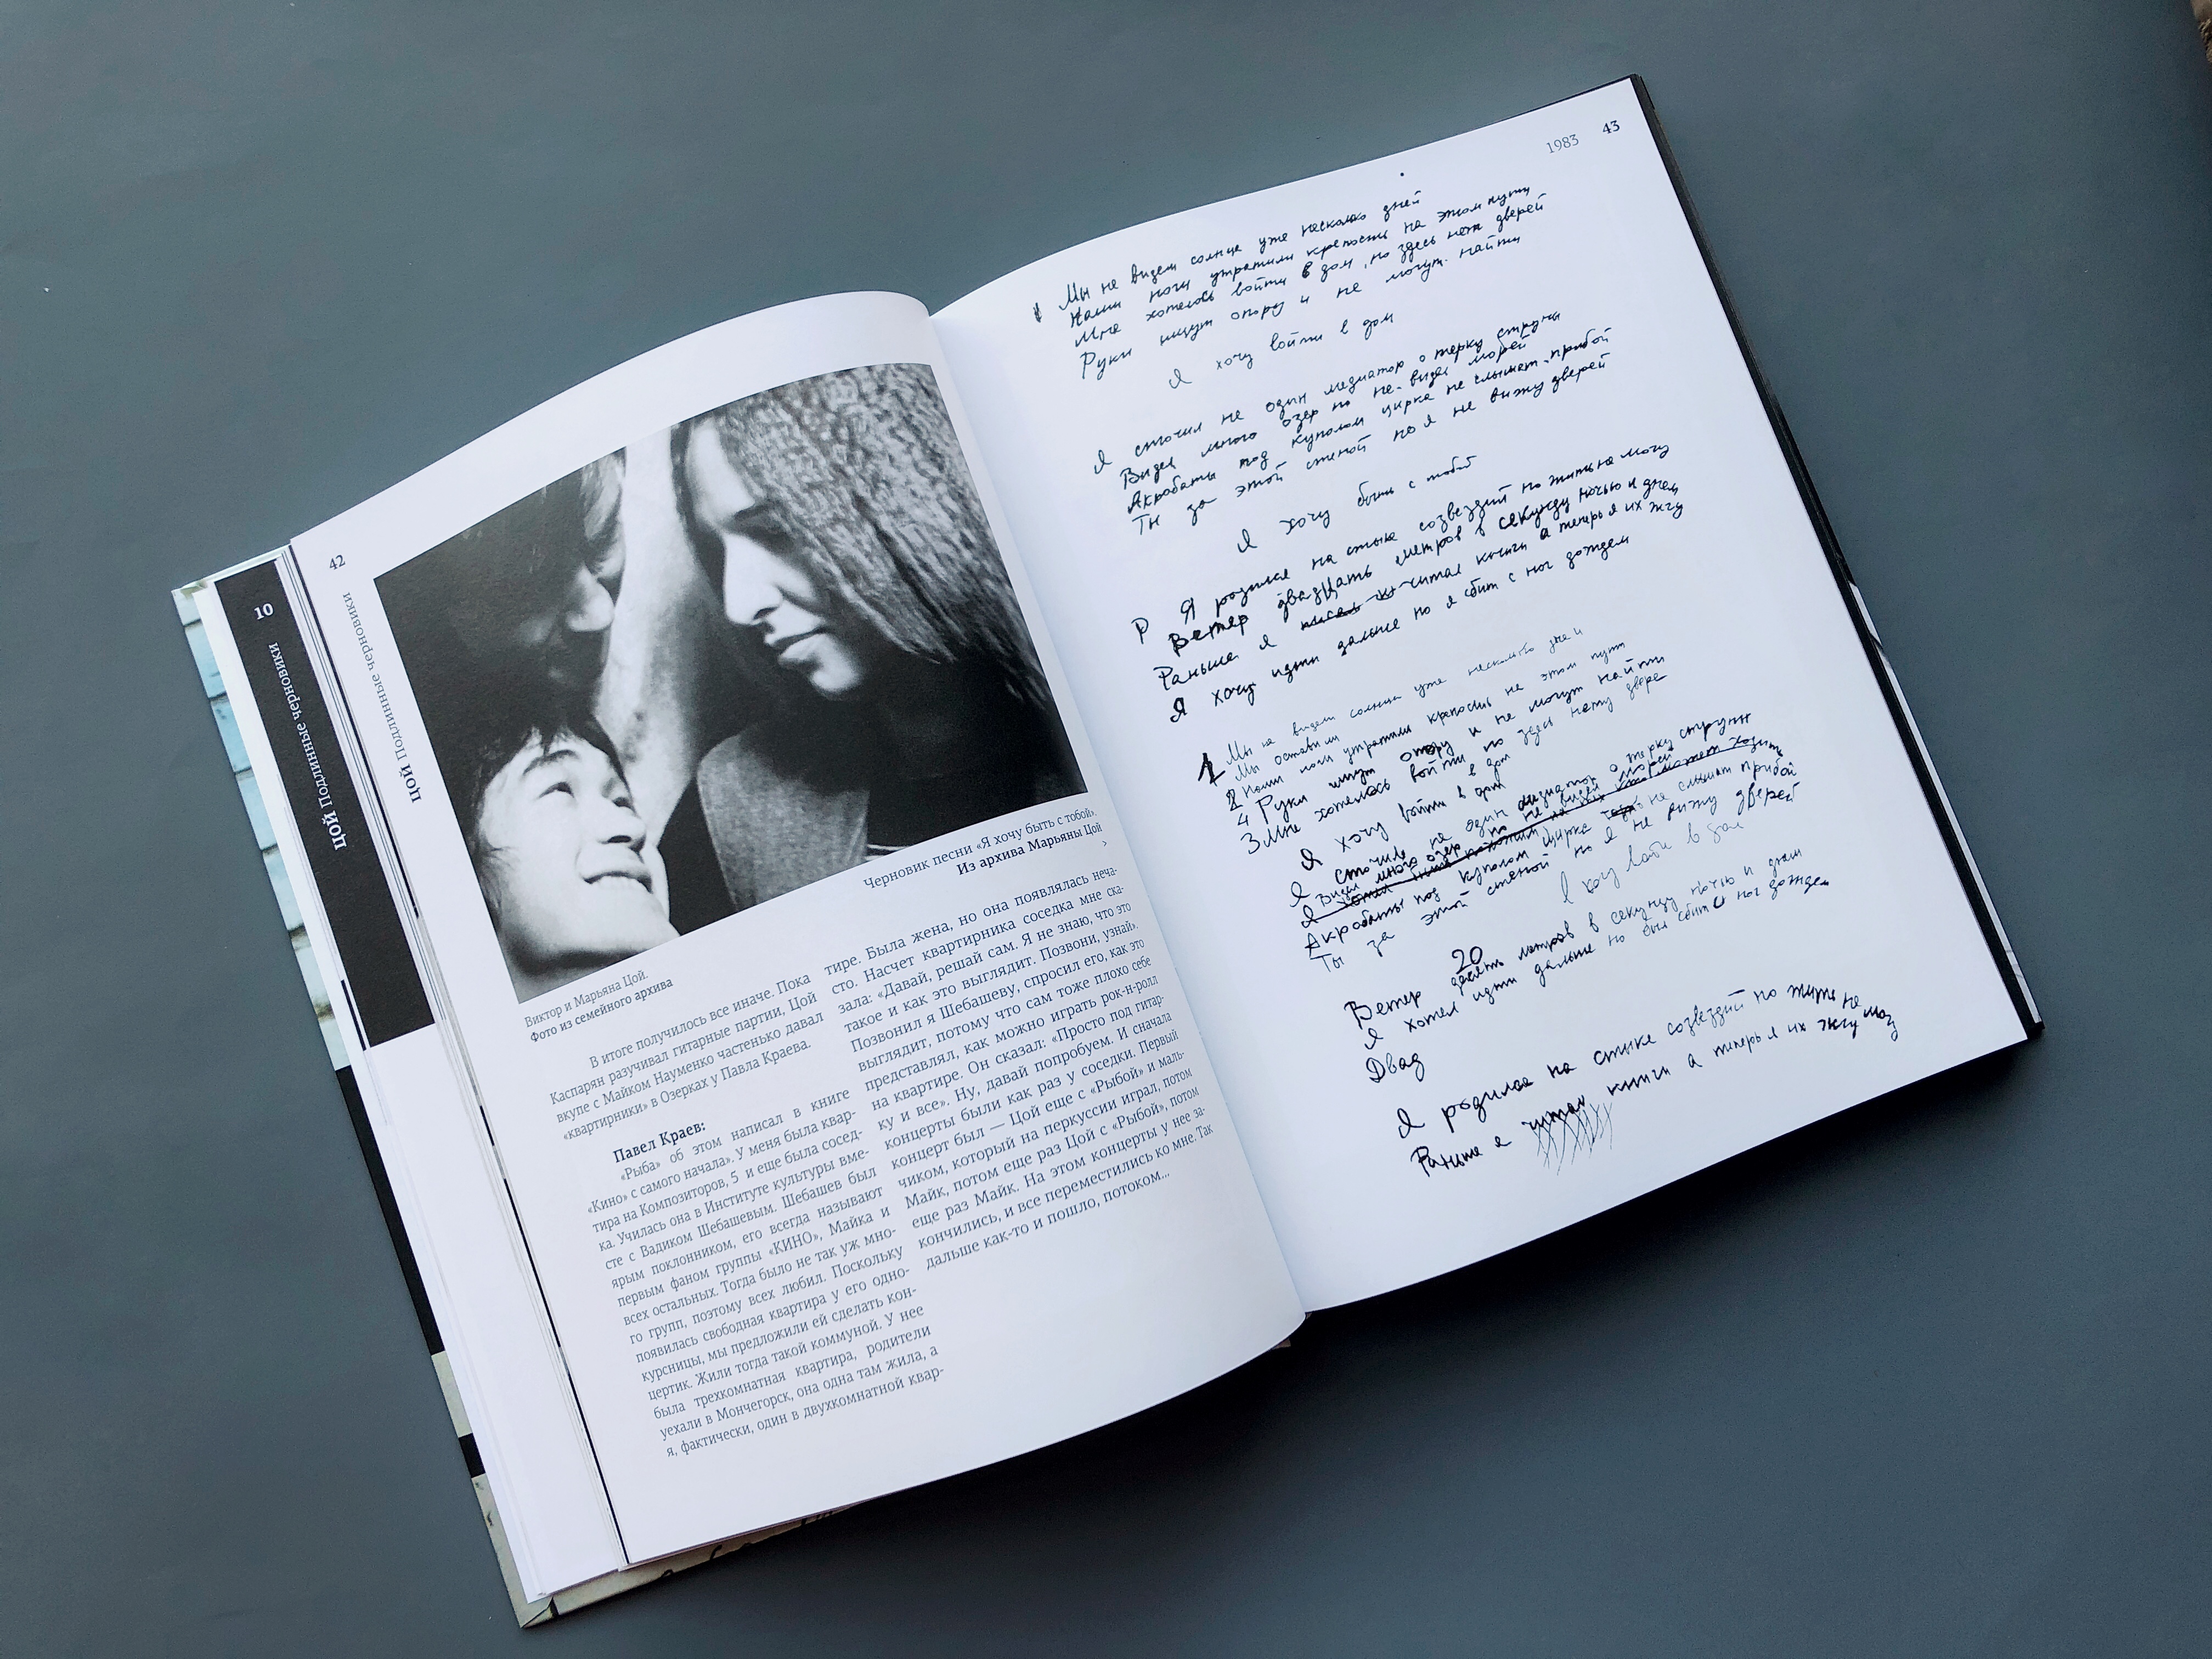 10
ЦОЙ Подлинные черновики
42
ЦОЙ Подлинные черновики
Черновик песни «Я хочу быть с тобой».
Из архива Марьяны Цой
›
Виктор и Марьяна Цой.
Фото из семейного архива
В итоге получилось все иначе. Пока
Каспарян разучивал гитарные партии, Цой
вкупе с Майком Науменко частенько давал
«квартирники» в Озерках у Павла Краева.
Павел Краев:
«Рыба» об этом написал в книге
«Кино» с самого начала». У меня была квар-
тира на Композиторов, 5 и еще была сосед-
ка. Училась она в Институте культуры вме-
сте с Вадиком Шебашевым. Шебашев был
ярым поклонником, его всегда называют
первым фаном группы «КИНО», Майка и
всех остальных. Тогда было не так уж мно-
го групп, поэтому всех любил. Поскольку
появилась свободная квартира у его одно-
курсницы, мы предложили ей сделать кон-
цертик. Жили тогда такой коммуной. У нее
была трехкомнатная квартира, родители
уехали в Мончегорск, она одна там жила, а
я, фактически, один в двухкомнатной квар-
тире. Была жена, но она появлялась неча-
сто. Насчет квартирника соседка мне ска-
зала: «Давай, решай сам. Я не знаю, что это
такое и как это выглядит. Позвони, узнай».
Позвонил я Шебашеву, спросил его, как это
выглядит, потому что сам тоже плохо себе
представлял, как можно играть рок-н-ролл
на квартире. Он сказал: «Просто под гитар-
ку и все». Ну, давай попробуем. И сначала
концерты были как раз у соседки. Первый
концерт был — Цой еще с «Рыбой» и маль-
чиком, который на перкуссии играл, потом
Майк, потом еще раз Цой с «Рыбой», потом
еще раз Майк. На этом концерты у нее за-
кончились, и все переместились ко мне. Так
дальше как-то и пошло, потоком...
1983 43
Мы не видем солнца уже несколько дней
Наши ноги утратили крепость на этом пути
Мне хотелось войти в дом, но здесь нет дверей
Руки ищут опору и не могут найти
Я хочу войти в дом
Я сточил не один медиатор о терку струны
Видел много озер но не видел морей
Акробаты под куполом цирка не слышат прибой
Ты за этой стеной но я не вижу дверей
Я хочу быть с тобой
Р Я родился на стыке созвездий но жить не могу
Ветер двадцать метров в секунду ночью и днем
Раньше я писал читал книги а теперь я их жгу
Я хочу идти дальше но я сбит с ног дождем
1 Мы не видели солнца уже несколько дней
Мы оставили
2 Наши ноги утратили крепость на этом пути
4 Руки ищут опору и не могут найти
3 Мне хотелось войти но здесь нету двере
Я хочу войти в дом
Я сточил не один медиатор о терку струны
Видел много озер но не видел морей
Я
Акробаты под куполом цирка не слышат прибой
Ты за этой стеной но я не вижу дверей
Я хочу войти в дом
20
Ветер десять метров в секунду ночью и днем
Я хотел идти дальше но был сбит с ног дождем
Двад
Я родился на стыке созвездий но жить не могу
Раньше я читал книги а теперь я их жгу